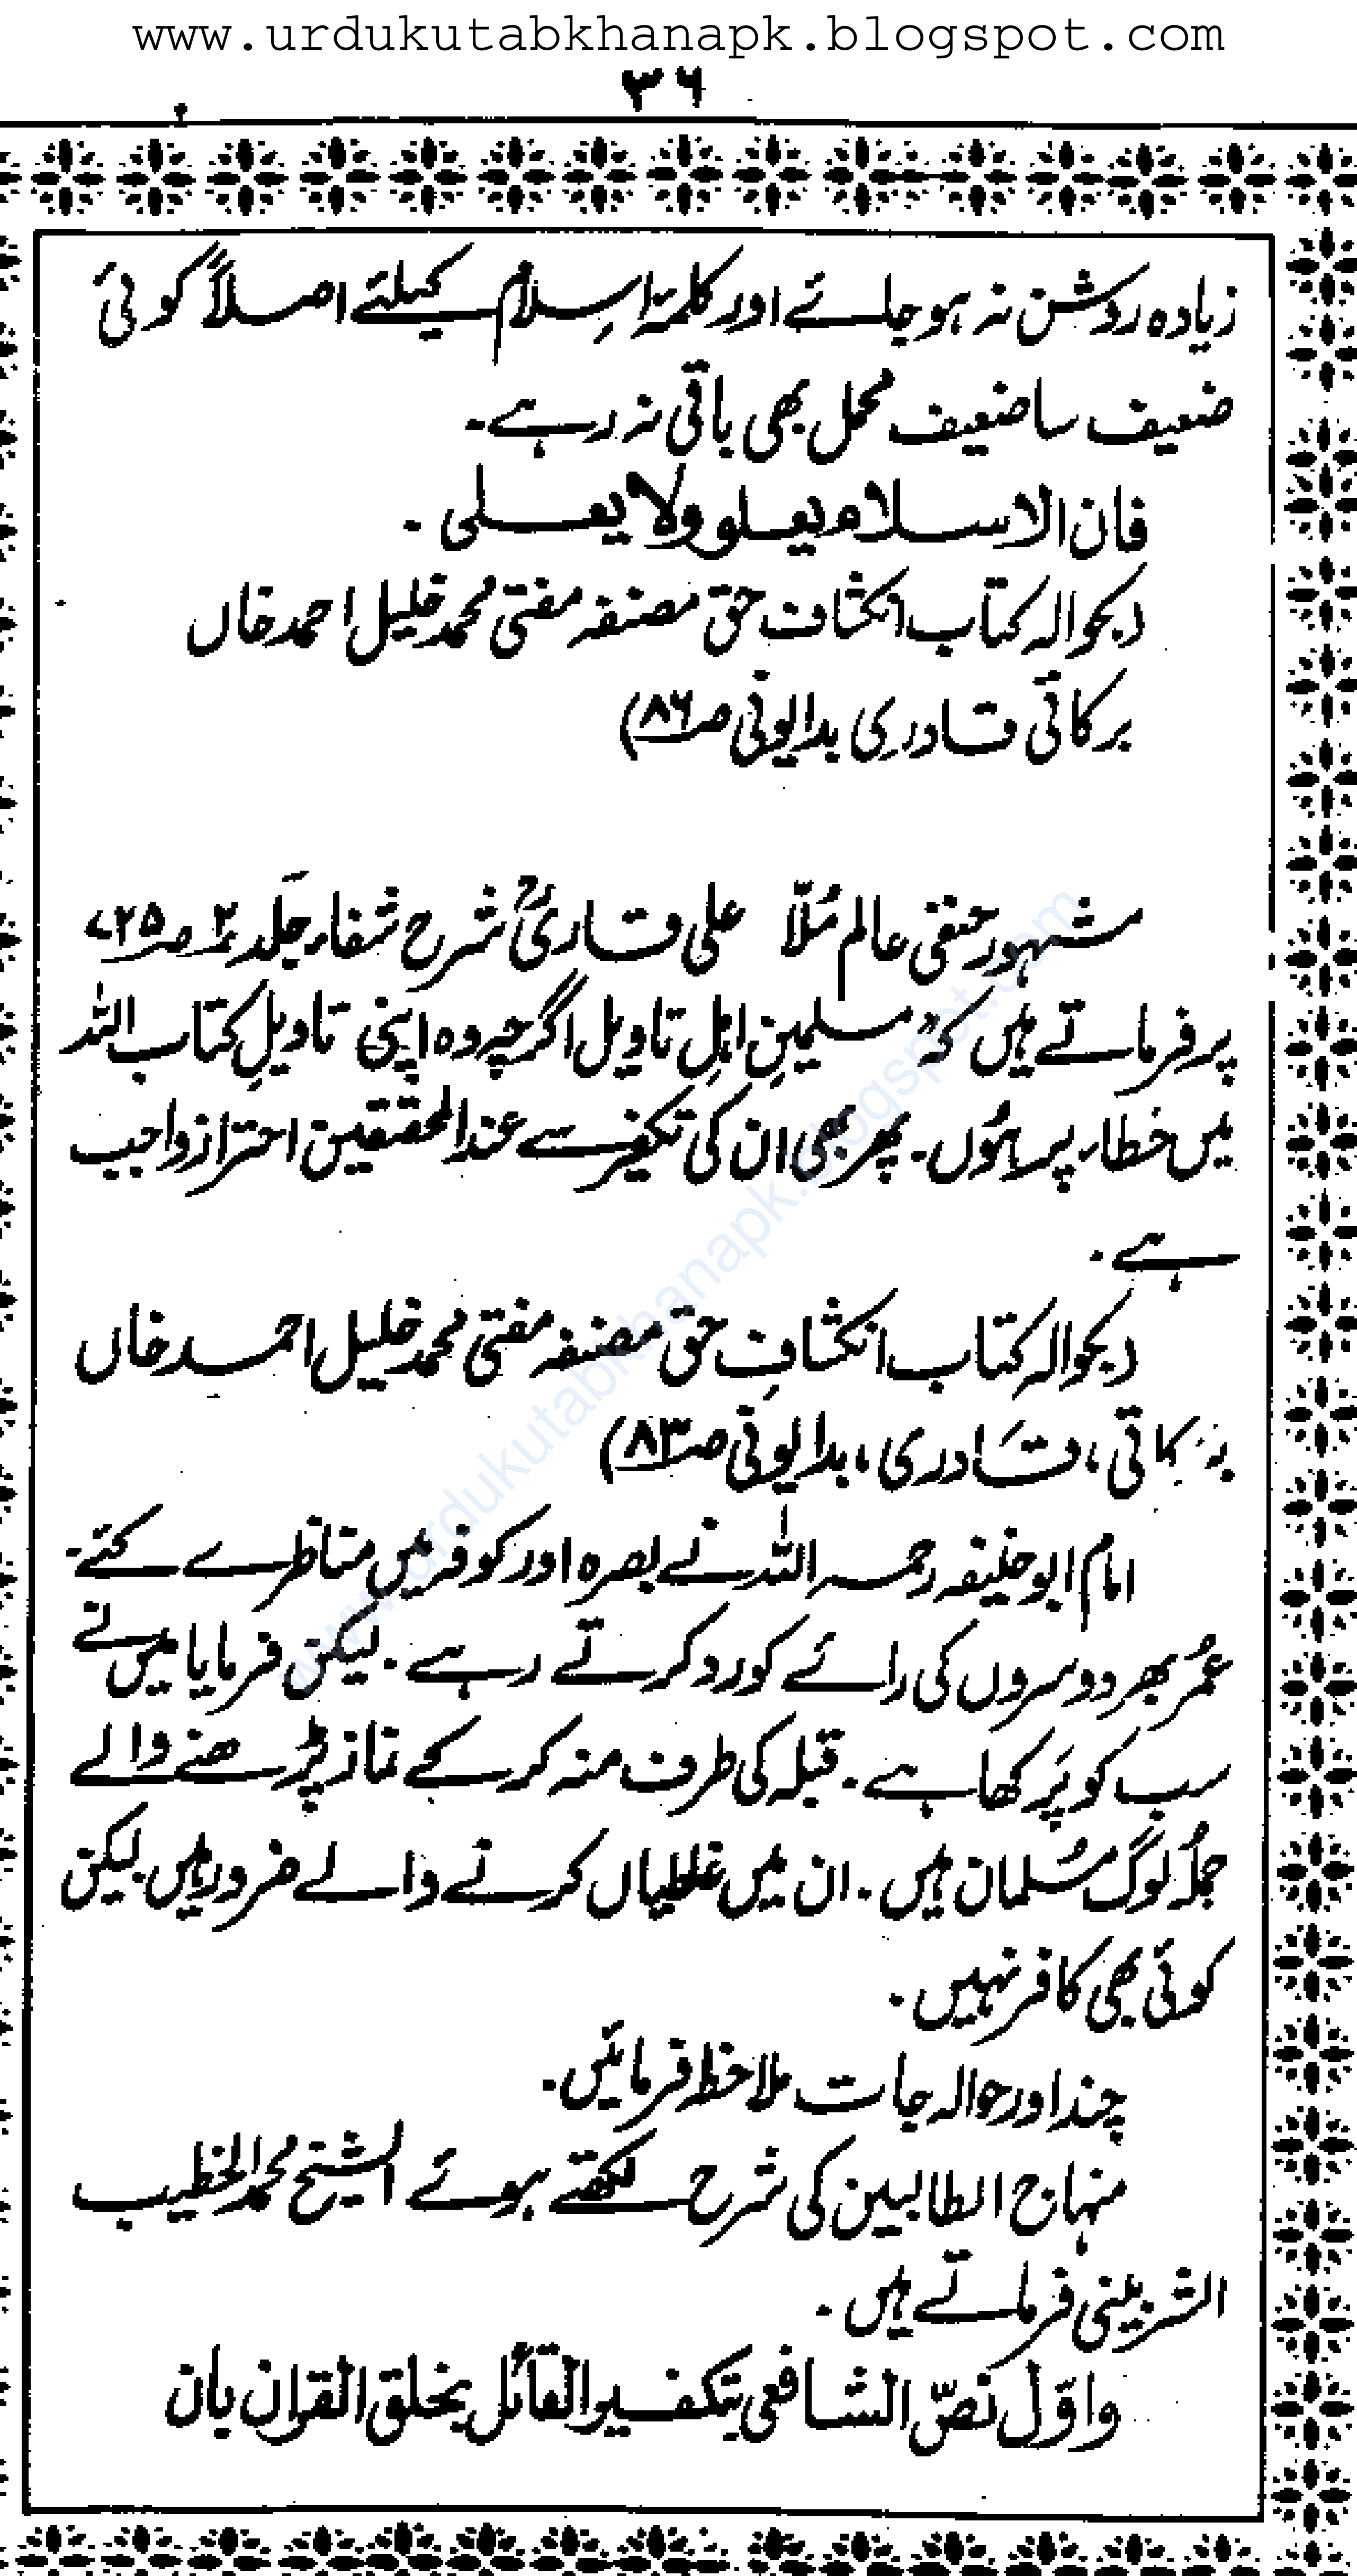 www.urdukutabkhanapk.blogspot.com
۳۶
زیادہ روشن نہ ہوجائے اور کلمۂ اسلام کیلئے اصلاً کوئی
ضعیف سا ضعیف محمل بھی باقی نہ رہے۔
فان الاسلام یعلو ولا یعلی۔
(بحوالہ کتاب انکشاف حق مصنفہ مفتی محمد خلیل احمد خاں
برکاتی قادری بدایونی صـ۸۶)
مشہور حنفی عالم مُلّا علی قاریؒ شرح شفاء جلد ۲ صـ۴۲۵
پر فرماتے ہیں کہ "مسلمینِ اہلِ تاویل اگرچہ وہ اپنی تاویلِ کتاب اللہ
میں خطاء پر ہُوں۔ پھر بھی ان کی تکفیر سے عندالمحققین احتراز واجب
ہے۔
(بحوالہ کتاب انکشافِ حق مصنفہ مفتی محمد خلیل احمد خاں
برکاتی، قادری، بدایونی صـ۸۳)
امام ابوحنیفہ رحمہ اللہ نے بصرہ اور کوفہ میں مناظرے کئے۔
عُمر بھر دوسروں کی رائے کو رد کرتے رہے۔ لیکن فرمایا میں نے
سب کو پَرکھا ہے۔ قبلہ کی طرف منہ کرکے نماز پڑھنے والے
جملُہ لوگ مُسلمان ہیں۔ ان میں غلطیاں کرنے والے ضرور ہیں لیکن
کوئی بھی کافر نہیں۔
چند اور حوالہ جات ملاحظہ فرمائیں۔
منہاج الطالبین کی شرح لکھتے ہوئے الشیخ محمد الخطیب
الشربینی فرماتے ہیں۔
واوّل نصّ الشافعی بتکفیر القائل بخلق القران بان
www.urdukutabkhanapk.blogspot.com